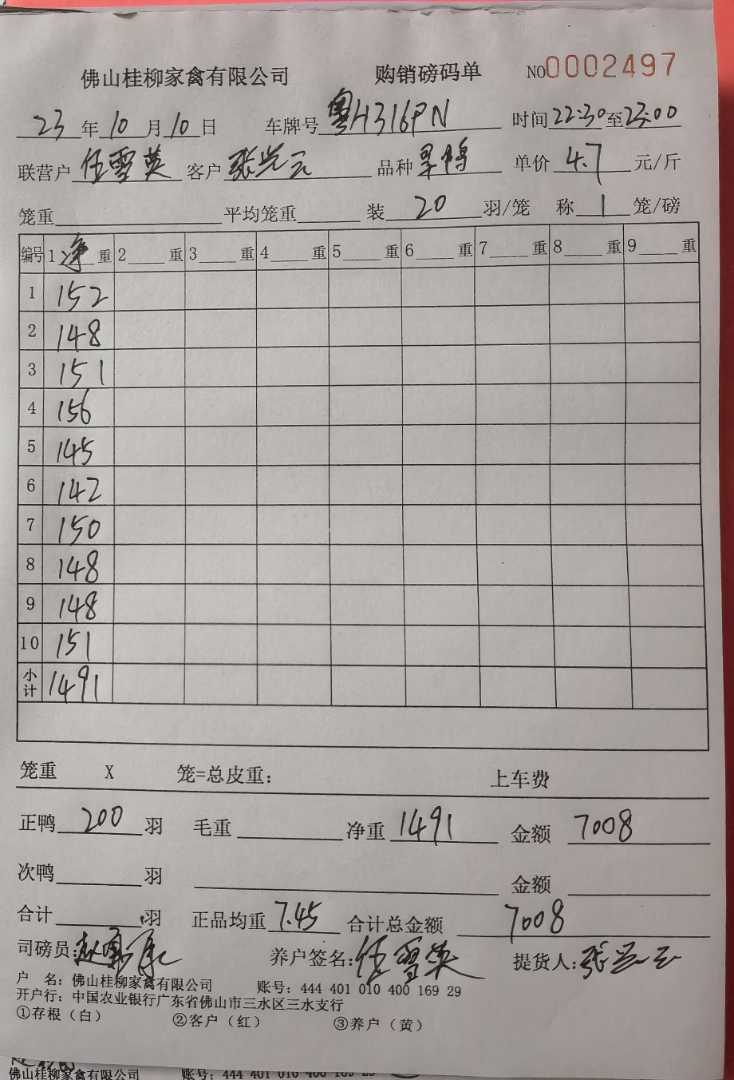 佛山桂柳家禽有限公司 购销磅码单 NO0002497
23年10月10日 车牌号粤H316PN 时间22:30至23:00
联营户伍雪英 客户张兴云 品种 单价4.7元/斤
笼重 平均笼重 装20羽/笼 称1笼/磅
编号 1净重 2 重 3 重 4 重 5 重 6 重 7 重 8 重 9 重
1 152
2 148
3 151
4 156
5 145
6 142
7 150
8 148
9 148
10 151
小计 1491
笼重 X 笼=总皮重: 上车费
正鸭200羽 毛重 净重1491 金额7008
次鸭 羽 金额
合计 羽 正品均重7.45 合计总金额7008
司磅员: 养户签名:伍雪英 提货人:张兴云
户 名: 佛山桂柳家禽有限公司 账号: 444 401 010 400 169 29
开户行: 中国农业银行广东省佛山市三水区三水支行
①存根(白) ②客户(红) ③养户(黄)
佛山桂柳家禽有限公司 账号: 444 401 010 400 169 29